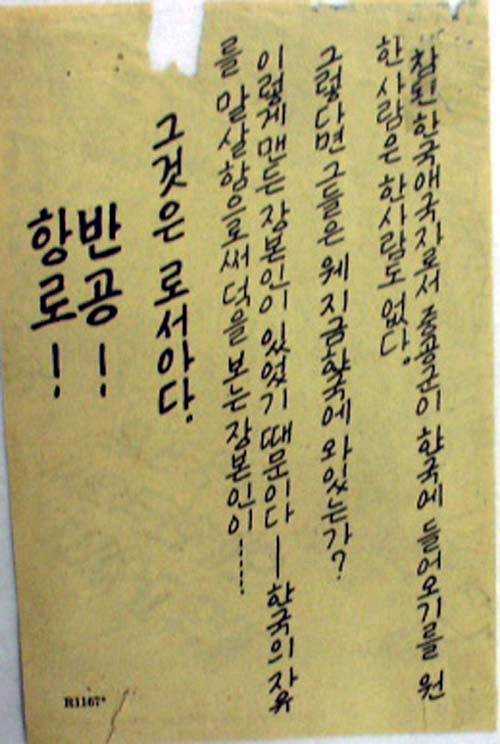 참된 한국애국자로서 중공군이 한국에 들어오기를 원
한 사람은 한사람도 없다.
그렇다면 그들은 웨 지금한국에 와있는가?
이렇게 맨든 장본인이 있었기 때문이다 — 한국의 자유
를 말살함으로써 덕을 보는 장본인이……
그것은 로서아다.
반공!
항로!
R1167*